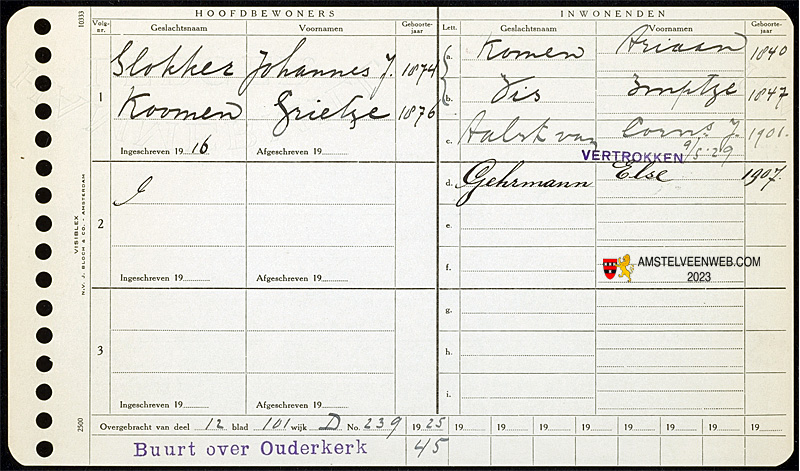 HOOFDBEWONERS
INWONENDEN
Volg-nr. Geslachtsnaam Voornamen Geboorte-jaar
Lett. Geslachtsnaam Voornamen Geboorte-jaar
10333
1
Slokker Johannes J. 1874
Koomen Grietje 1876
Ingeschreven 19 16 Afgeschreven 19
2
Ingeschreven 19 Afgeschreven 19
3
Ingeschreven 19 Afgeschreven 19
a. Komen Ariaan 1840
b. Vis 1847
c. Aalst van J. 1901.
VERTROKKEN 9/5-29
d. Gehrmann Else 1907.
e.
f.
g.
h.
i.
AMSTELVEENWEB.COM
2023
VISIBLEX
N.V. J. BLOCH & CO. - AMSTERDAM
2500
Overgebracht van deel 12 blad 101 wijk D No. 239 19 25 19 19 19 19 19 19 19 19
Buurt over Ouderkerk 45